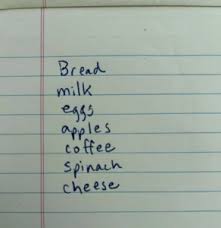 Bread
milk
eggs
apples
coffee
spinach
cheese